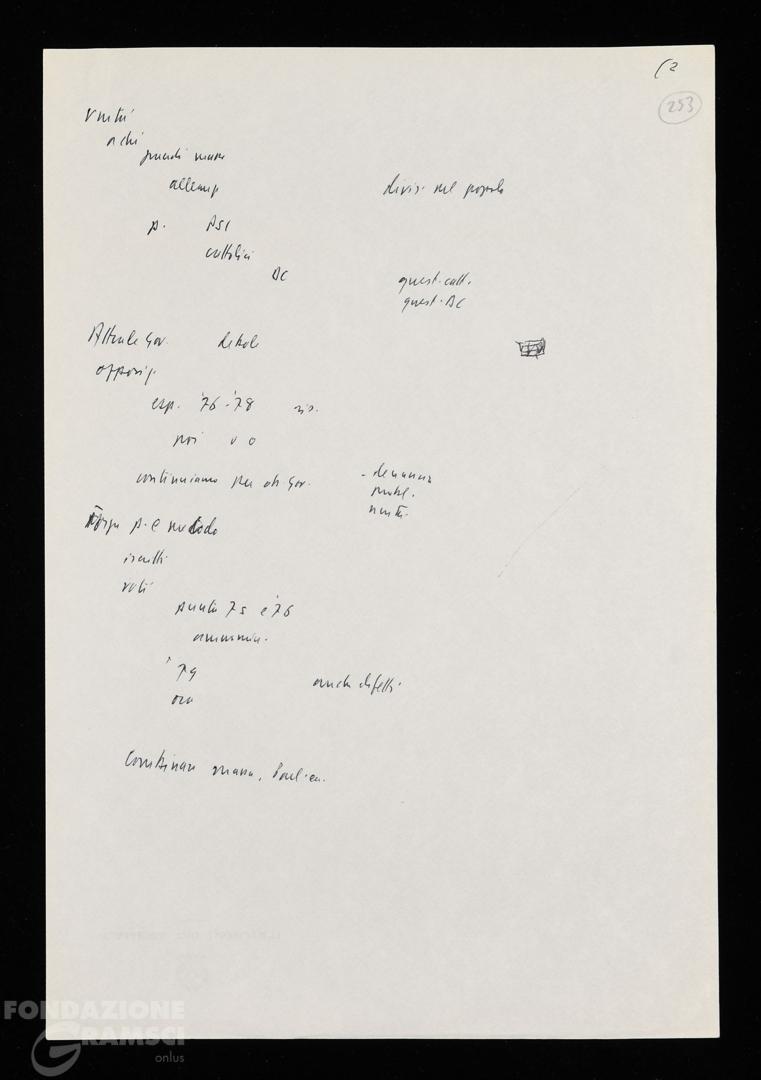 (2
253
Unità
a chi
grandi masse
allenup divis. nel popolo
p. PSI
cattolici
DC quest. catt.
quest. DC
Attuale Gov. debole
opposiz.
esp. '76-'78 ris.
noi v o
continuiamo per alt. Gov. - denuncia
mobil.
unità.
Forza p. e metodo
iscritti
voti
punta 75 e '76
'79 anche difetti.
ora
Combinare manov., Parl. ea.
FONDAZIONE
GRAMSCI
onlus